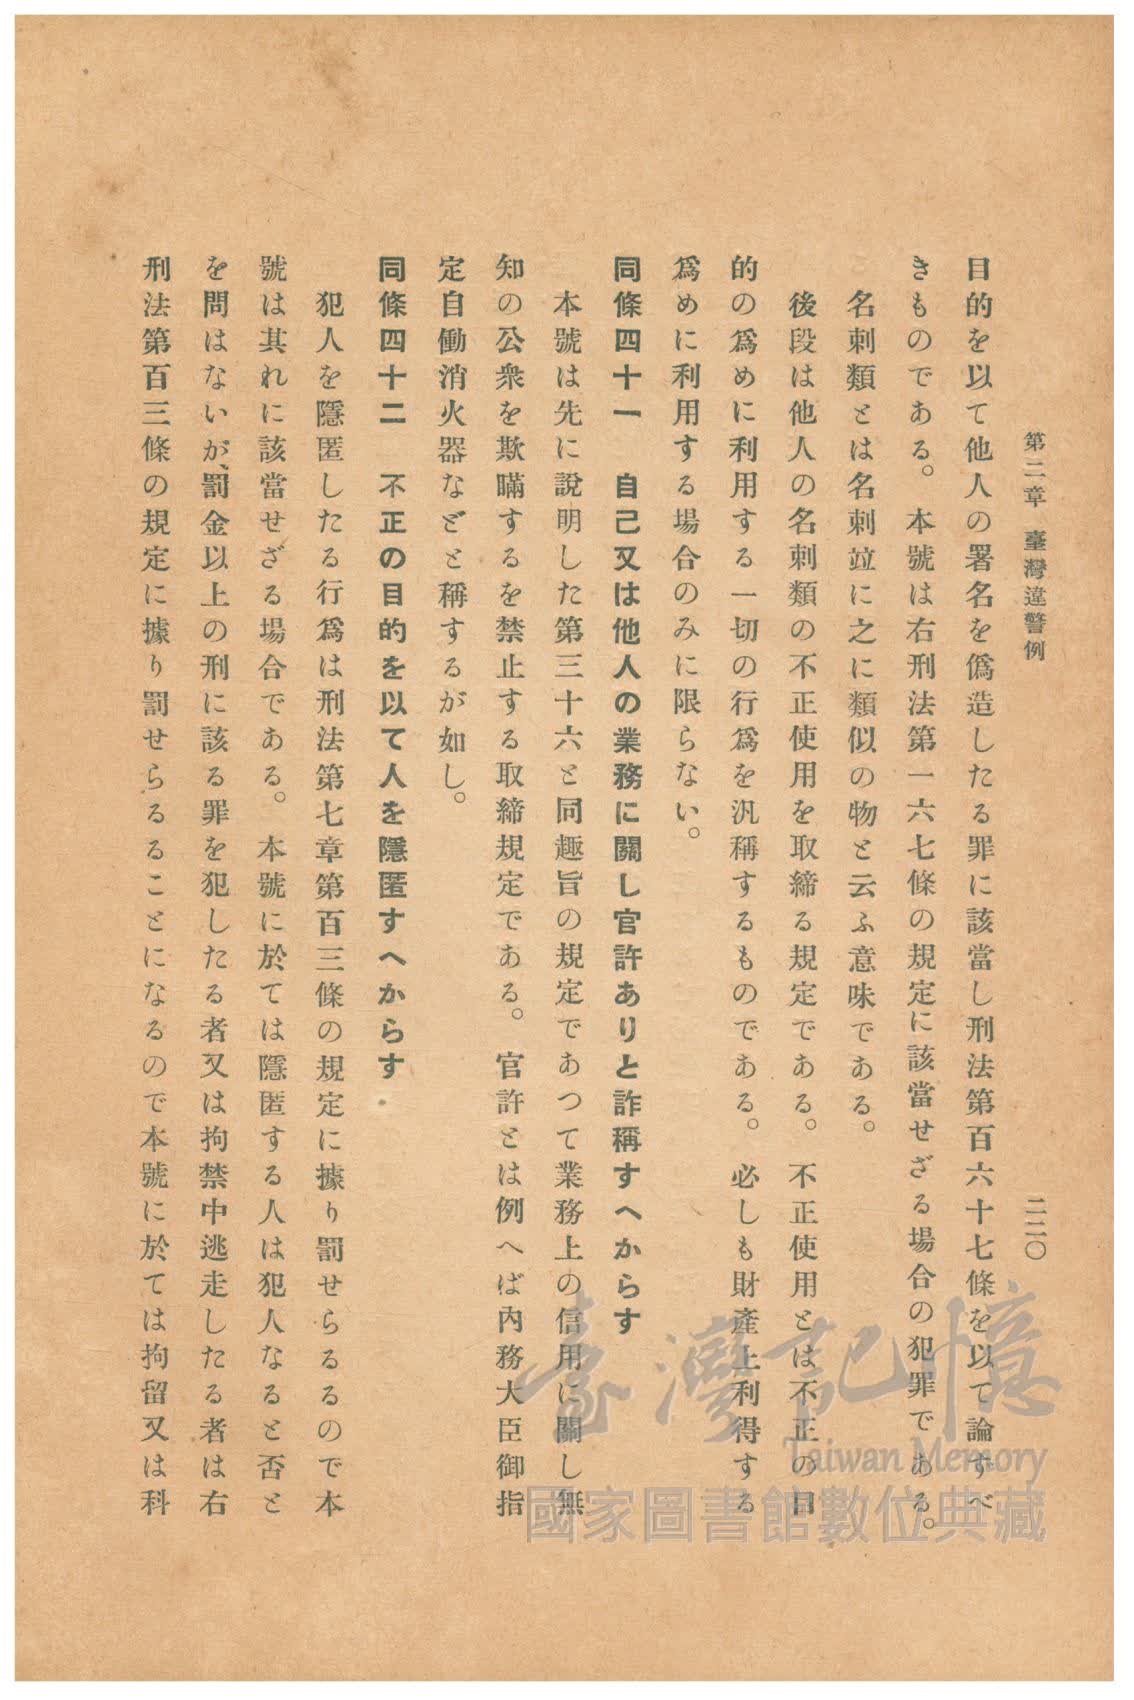 第二章 臺灣違警例
二二〇
目的を以て他人の署名を僞造したる罪に該當し刑法第百六十七條を以て論すべ
きものである。本號は右刑法第一六七條の規定に該當せざる場合の犯罪である。
名刺類とは名刺竝に之に類似の物と云ふ意味である。
後段は他人の名刺類の不正使用を取締る規定である。不正使用とは不正の目
的の爲めに利用する一切の行爲を汎稱するものである。必しも財產上利得する
爲めに利用する場合のみに限らない。
同條四十一 自己又は他人の業務に關し官許ありと詐稱すへからす
本號は先に說明した第三十六と同趣旨の規定であつて業務上の信用に關し無
知の公衆を欺瞞するを禁止する取締規定である。官許とは例へば內務大臣御指
定自働消火器などと稱するが如し。
同條四十二 不正の目的を以て人を隱匿すへからす
犯人を隱匿したる行爲は刑法第七章第百三條の規定に據り罰せらるるので本
號は其れに該當せざる場合である。本號に於ては隱匿する人は犯人なると否と
を問はないが、罰金以上の刑に該る罪を犯したる者又は拘禁中逃走したる者は右
刑法第百三條の規定に據り罰せらるることになるので本號に於ては拘留又は科
臺灣記憶
Taiwan Memory
國家圖書館數位典藏